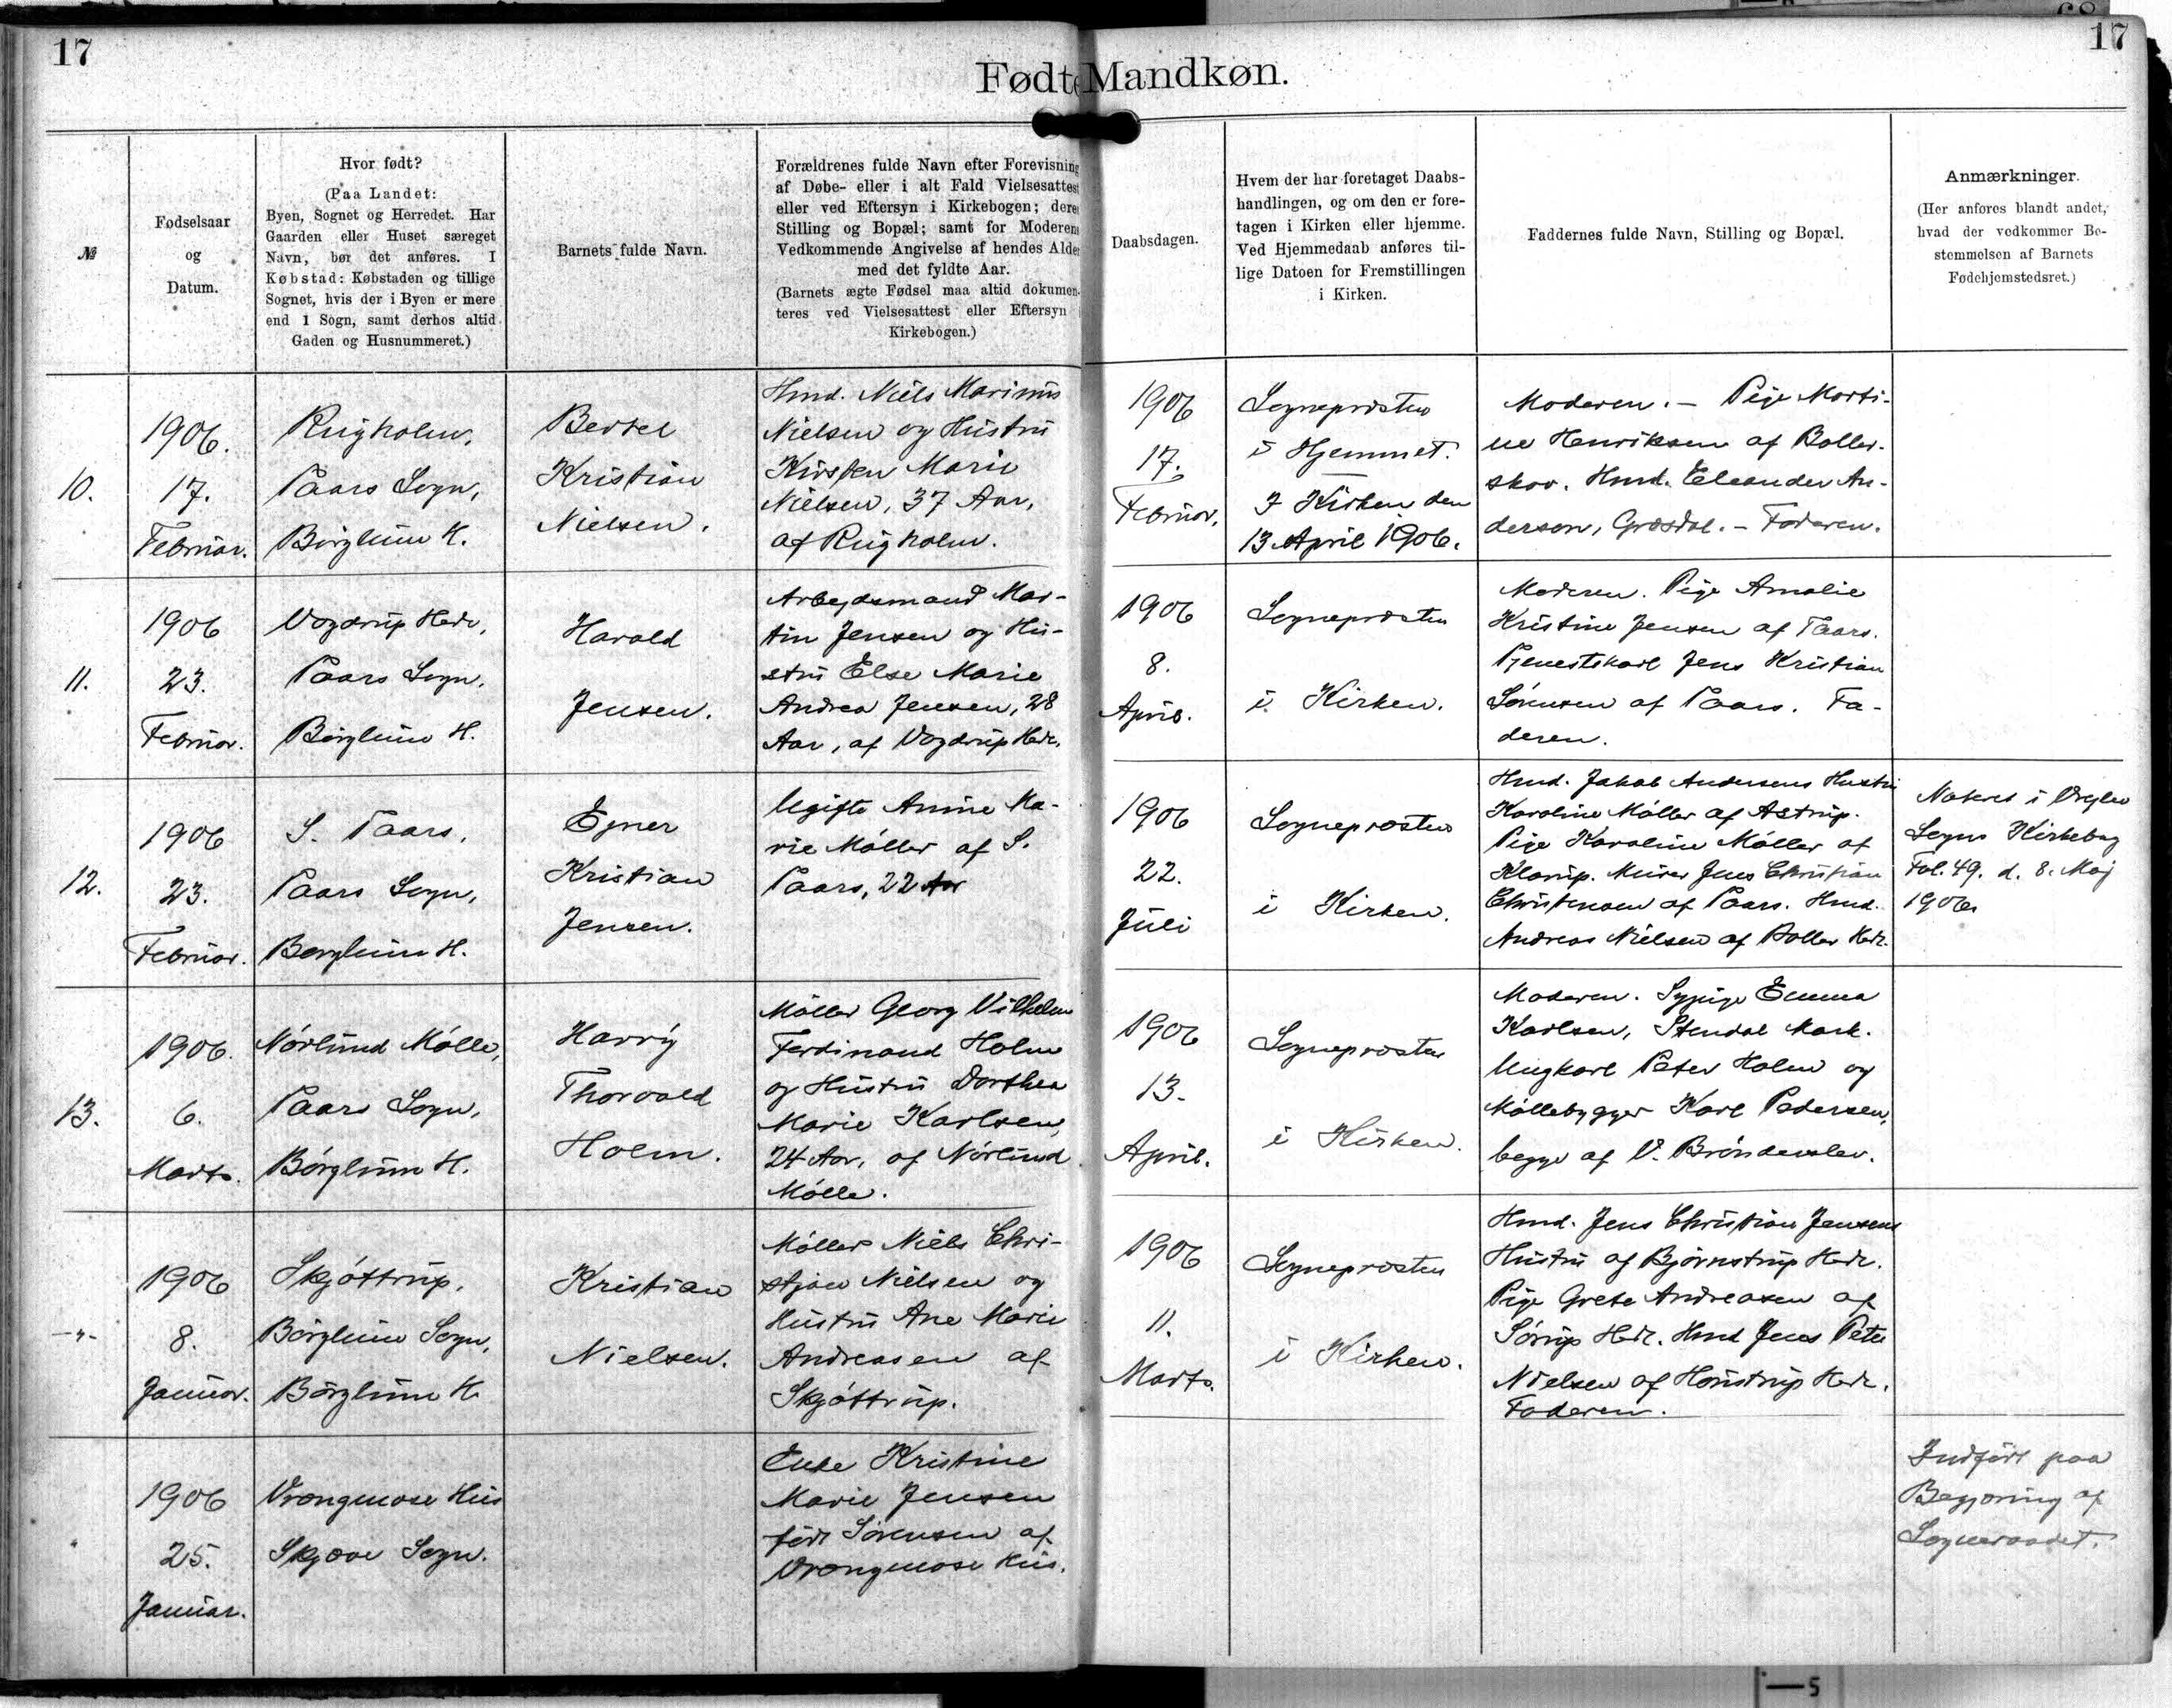 17
17
Fødte Mandkøn.
№
Fødselsaar
og
Datum.
Hvor født?
(Paa Landet:
Byen, Sognet og Herredet. Har
Gaarden eller Huset særeget
Navn, bør det anføres. I
Købstad: Købstaden og tillige
Sognet, hvis der i Byen er mere
end 1 Sogn, samt derhos altid
Gaden og Husnummeret.)
Barnets fulde Navn.
Forældrenes fulde Navn efter Forevisning
af Døbe- eller i alt Fald Vielsesattest
eller ved Eftersyn i Kirkebogen; deres
Stilling og Bopæl; samt for Moderens
Vedkommende Angivelse af hendes Alder
med det fyldte Aar.
(Barnets ægte Fødsel maa altid dokumen-
teres ved Vielsesattest eller Eftersyn i
Kirkebogen.)
Daabsdagen.
Hvem der har foretaget Daabs-
handlingen, og om den er fore-
tagen i Kirken eller hjemme.
Ved Hjemmedaab anføres til-
lige Datoen for Fremstillingen
i Kirken.
Faddernes fulde Navn, Stilling og Bopæl.
Anmærkninger.
(Her anføres blandt andet,
hvad der vedkommer Be-
stemmelsen af Barnets
Fødehjemstedsret.)
10.
1906.
17.
Februar.
Rugholm,
Taars Sogn,
Børglum H.
Bertel
Kristian
Nielsen.
Hmd. Niels Marinus
Nielsen og Hustru
Kirsten Marie
Nielsen, 37 Aar,
af Rugholm.
1906
17.
Februar.
Sognepræsten
i Hjemmet.
I Kirken den
13 April 1906.
Moderen. - Pige Marti-
ne Henriksen af Boller-
skov. Hmd. Eleander An-
derson, Græsdal. - Faderen.
11.
1906
23.
Februar.
Vogdrup Hede,
Taars Sogn,
Børglum H.
Harald
Jensen.
Arbejdsmand Mar-
tin Jensen og Hu-
stru Else Marie
Andrea Jensen, 28
Aar, af Vogdrup Hede.
1906
8.
April.
Sognepræsten
i Kirken.
Moderen. Pige Amalie
Kristine Jensen af Taars.
Tjenestekarl Jens Kristian
Sørensen af Taars. Fa-
deren.
12.
1906
23.
Februar.
S. Taars,
Taars Sogn,
Børglum H.
Ejner
Kristian
Jensen.
Ugifte Anine Ma-
rie Møller af S.
Taars, 22 Aar
1906
22.
Juli
Sognepræsten
i Kirken.
Hmd. Jakob Andersens Hustru
Karoline Møller af Astrup.
Pige Karoline Møller af
Klarup. Murer Jens Christian
Christensen af Taars. Hmd.
Andreas Nielsen af Boller Hede.
Noteret i
Sogns Kirkebog
Fol. 49. d. 8. Maj
1906
13.
1906.
6.
Marts.
Nørlund Mølle,
Taars Sogn,
Børglum H.
Harry
Thorvald
Holm.
Møller Georg Vilhelm
Ferdinand Holm
og Hustru Dorthea
Marie Karlsen,
24 Aar, af Nørlund
Mølle.
1906
13.
April.
Sognepræsten
i Kirken.
Moderen. Sypige Emma
Karlsen, Stendal Mark.
Ungkarl Peter Holm og
Møllebygger Karl Pedersen,
begge af V. Brønderslev.
-"-
1906
8.
Januar.
Skjøttrup,
Børglum Sogn,
Børglum H.
Kristian
Nielsen.
Møller Niels Chri-
stjan Nielsen og
Hustru Ane Marie
Andreasen af
Skjøttrup.
1906
11.
Marts.
Sognepræsten
i Kirken.
Hmd. Jens Christian Jensens
Hustru af Bjørnstrup Hede.
Pige Grete Andreasen af
Sørup Hede. Hmd Jens Peter
Nielsen af Honstrup Hede.
Faderen.
"
1906
25.
Januar.
Vrangmose Hus
Skjæve Sogn.
Enke Kristine
Marie Jensen
født Sørensen af
Vrangmose Hus.
Indført paa
Begjæring af
Sogneraadet.
5